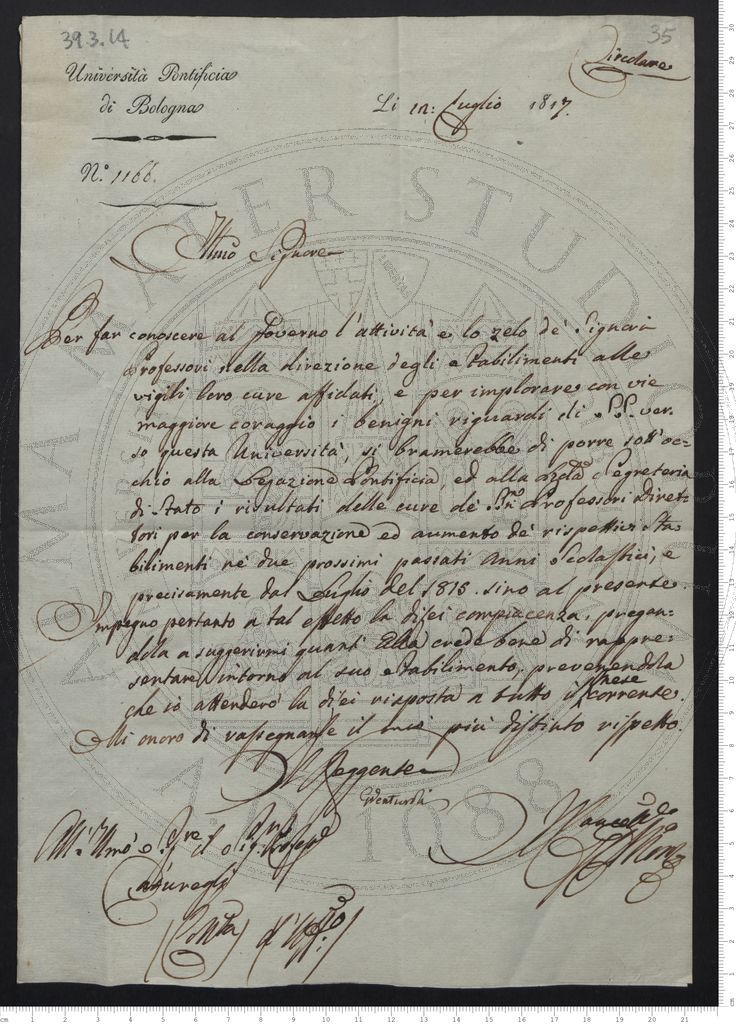 39.3.14
35
Circolare
Università Pontificia
di Bologna
Li 12: Luglio 1817.
N.° 1166.
Illmo Signore
Per far conoscere al Governo l'attività e lo zelo de' Signori
Professori nella direzione degli Stabilimenti alle
vigili loro cure affidati, e per implorare con vie
maggiore coraggio i benigni riguardi di S.S. ver-
so questa Università, si bramerebbe di porre sott'oc-
chio alla Legazione Pontificia, ed alla Segreteria
di Stato i risultati delle cure de' Sri Professori Diret-
tori per la conservazione ed aumento de' rispettivi Sta
bilimenti ne' due prossimi passati Anni Scolastici, e
precisamente dal Luglio del 1815. sino al presente.
Impegno pertanto a tal effetto la di Lei compiacenza, pregan-
dola a suggerirmi quanto Ella crede bene di rappre-
sentare intorno al suo Stabilimento, prevenendola
che io attenderò la di Lei risposta a tutto il mese corrente.
Mi onoro di rassegnarle il mio più distinto rispetto.
Il Reggente
All' Illmo e Sig.re il Sig. Profess.
Caturegli
ALMA MATER STUDIORUM
A.D. 1088